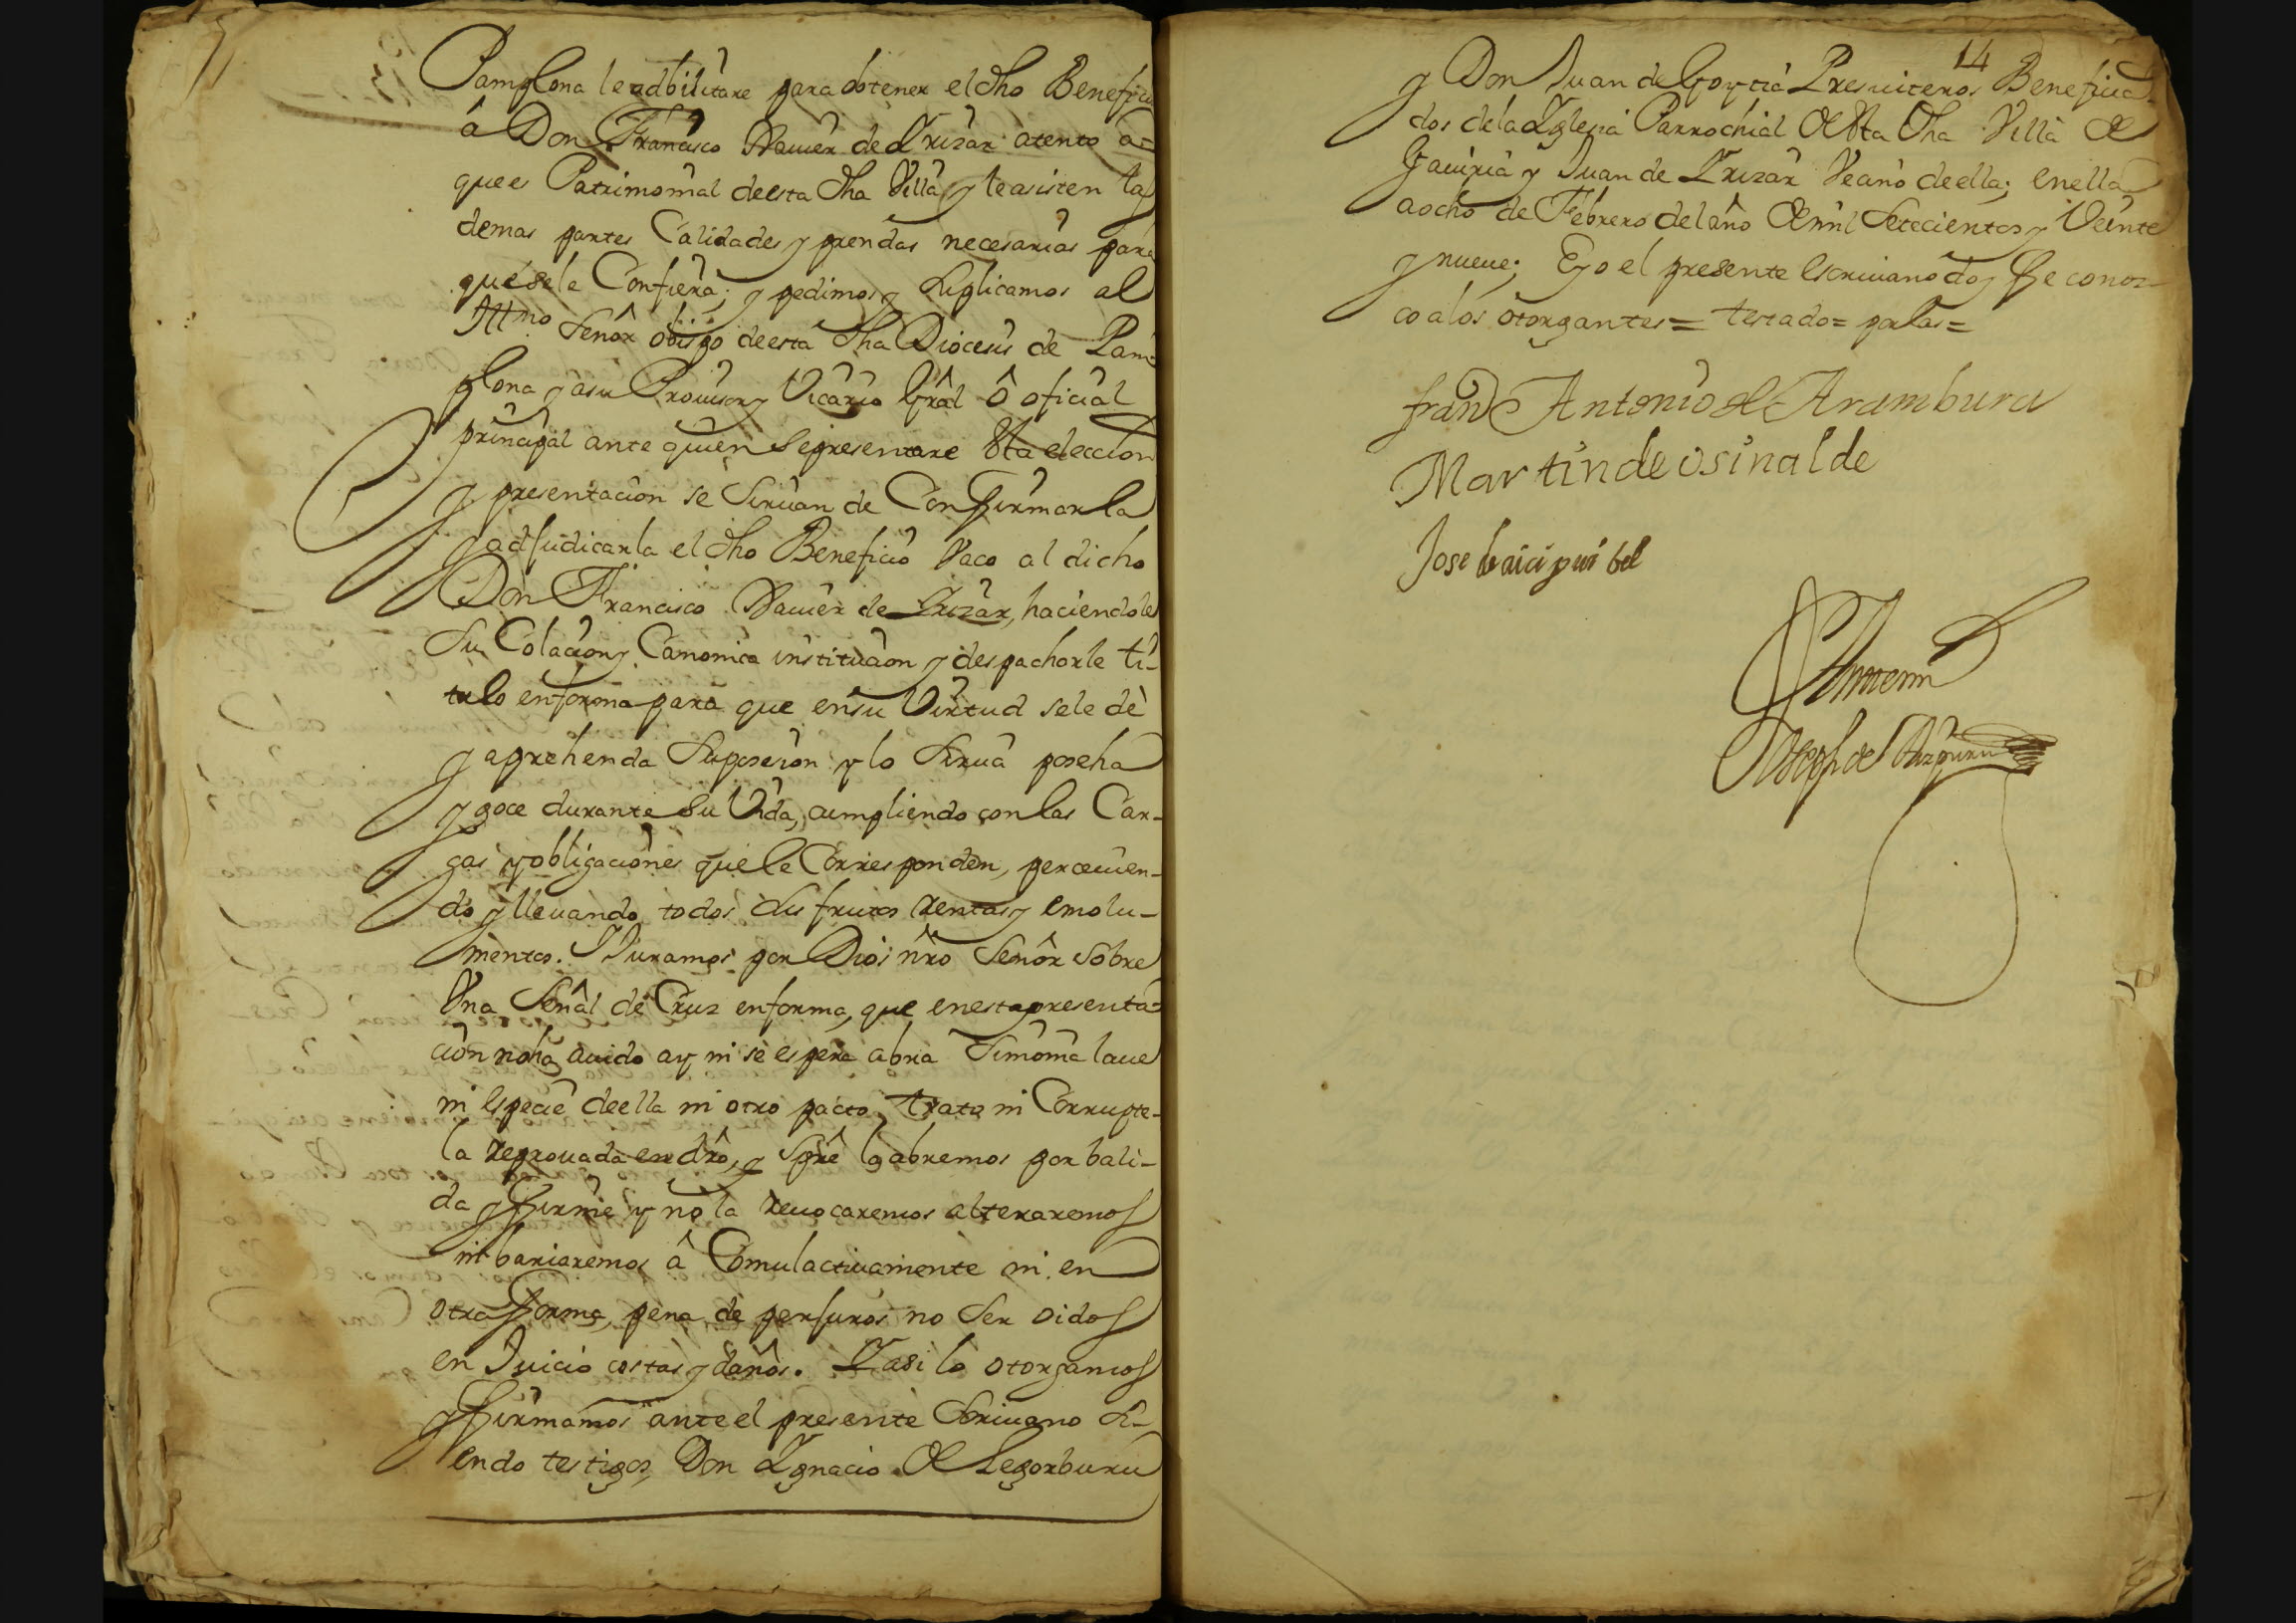 Pamplona le adbilitare para obtener el dho Beneficio
â Don Francisco Xauier de Yrizar atento a=
que es Patrimonial de esta dha Villa y le asisten las
demas partes Calidades y prendas necesarias para
que sele Confiera; y pedimos y suplicamos al
Illmo Señor obispo de esta dha Diocesis de Pam=
plona y asu Prouisor y Vicario Gral ô oficial
principal ante quien se presentare esta eleccion
y presentacion se siruan de Confirmarla
y adjudicarla el dho Beneficio Vaco al dicho
Don Francisco Xauier de Yrizar, haciendole
su Colacion y Canonica institucion y despacharle ti-
tulo en forma para que ensu Virtud sele dè
y aprehenda su posesion y lo sirua poseha
y goce durante su Vida, cumpliendo con las Car-
gas y obligaciones que le Corresponden, perceuien-
do y lleuando todos sus frutos rentas y emolu-
mentos. Y Juramos por Dios nro Señor sobre
Vna Señal de Cruz enforma, que enesta presenta=
cion no ha auido ay ni se espera abra Simonia laue
ni especie deella ni otro pacto, trato ni Corrupte-
la reprouada en dro, y spre la abremos por bali-
da y firme y no la reuocaremos alteraremos
ni bariaremos â Comulactiuamente ni en
otra forma, pena de perjuros no ser oidos
en Juicio costas y daños. Y asi lo otorgamos
y firmamos ante el presente Scriuano si-
endo testigos, Don Ygnacio de Legorburu
14
y Don Juan de Goytia Presuiteros Beneficia-
dos de la Yglesia Parrochial de esta dha Villa de
Gauiria y Juan de Yrizar Vecino de ella; en ella
a ocho de Febrero del año de mil Setecientos y Veinte
y nueue; E yo el presente escriuano doy fe conoz-
co a los otorgantes= testado= por las=
franco Antonio de Aramburu
Martin de osinalde
Jose de aicipuribel
Antemi
Joseph de Aizpuru